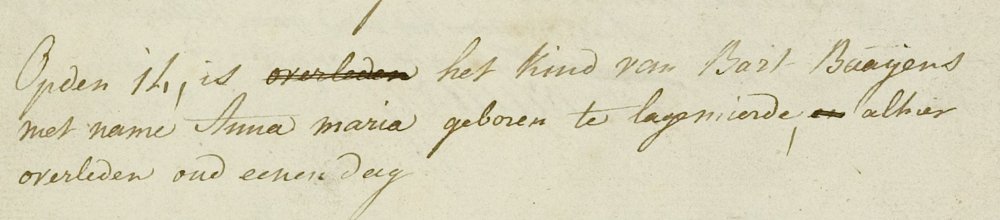 Opden 14, is overleden het Kind van Bart Baaijens
met name Anna maria geboren te lagemierde, en alhier
overleden oud eenen dag